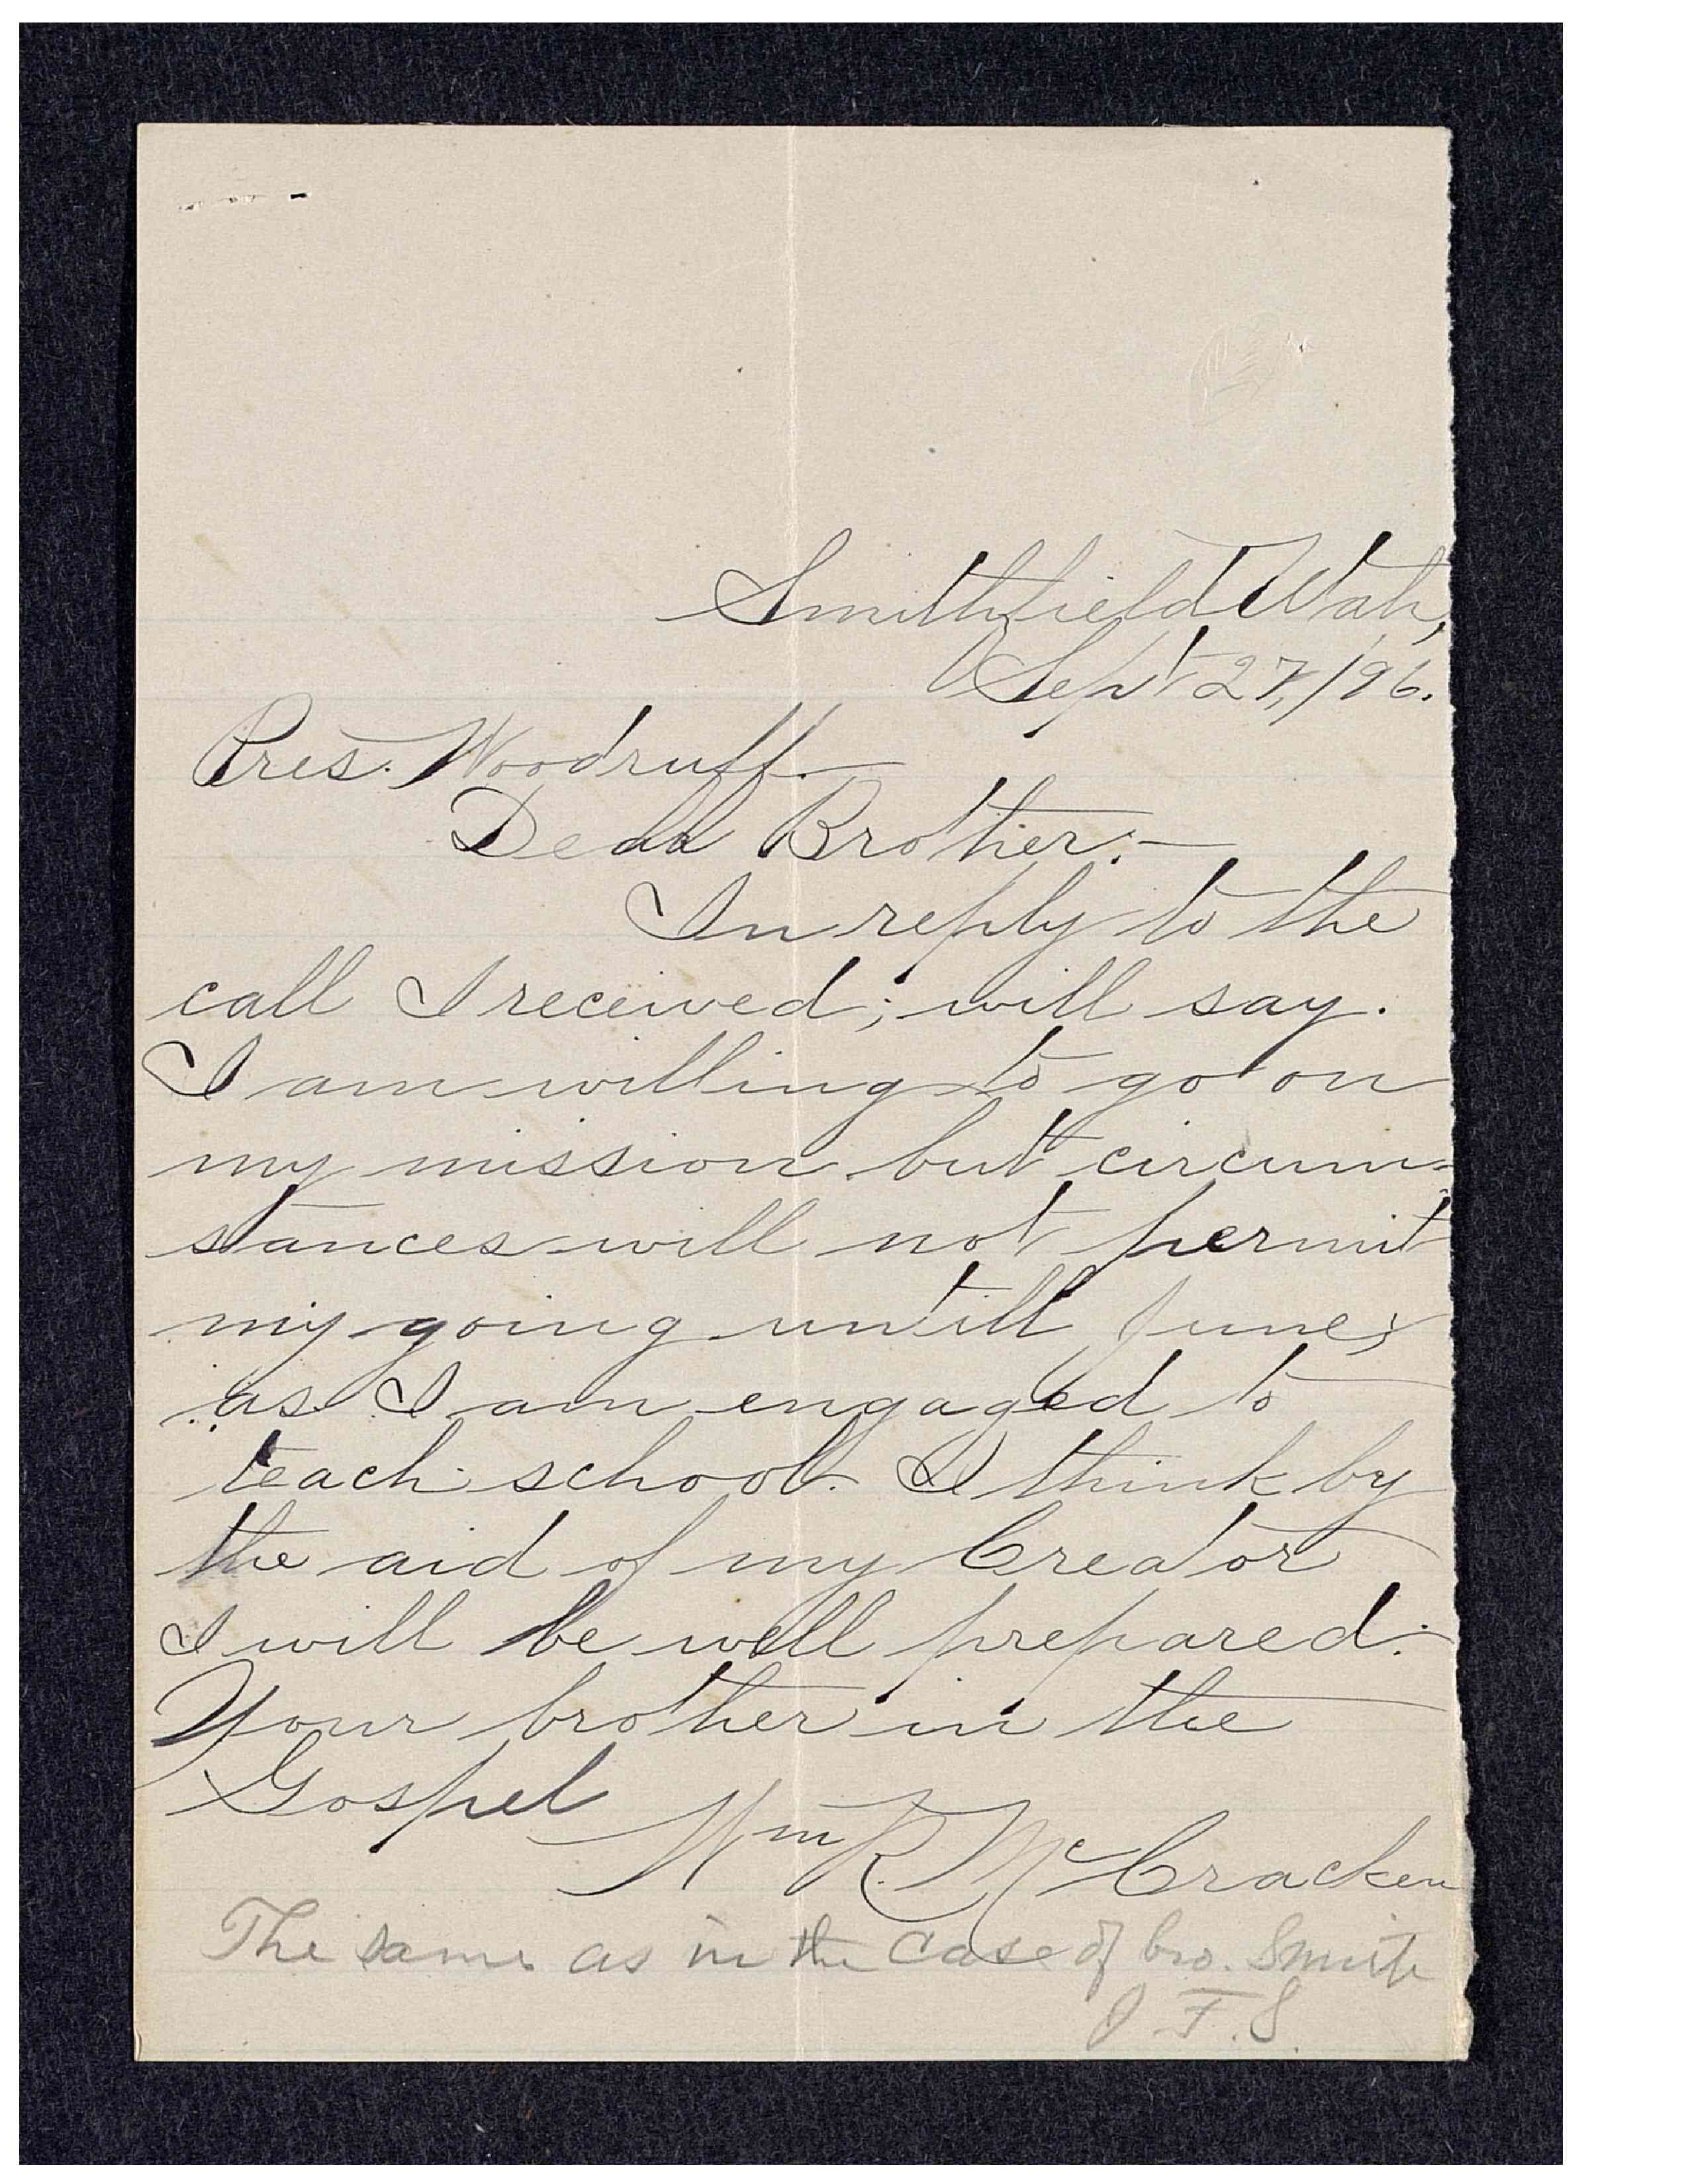 Smithfield Utah,
Sept 27,/96.
Pres. Woodruff.—
Dear Brother:—
In reply to the
call I received; will say.
I am willing to go on
my mission but circum-
stances will not permit
my going untill June;
as I am engaged to
teach school. I think by
the aid of my Creator
I will be well prepared.
Your brother in the
Gospel
Wm R. McCracken
The same as in the case of bro. Smith
J. F. S.